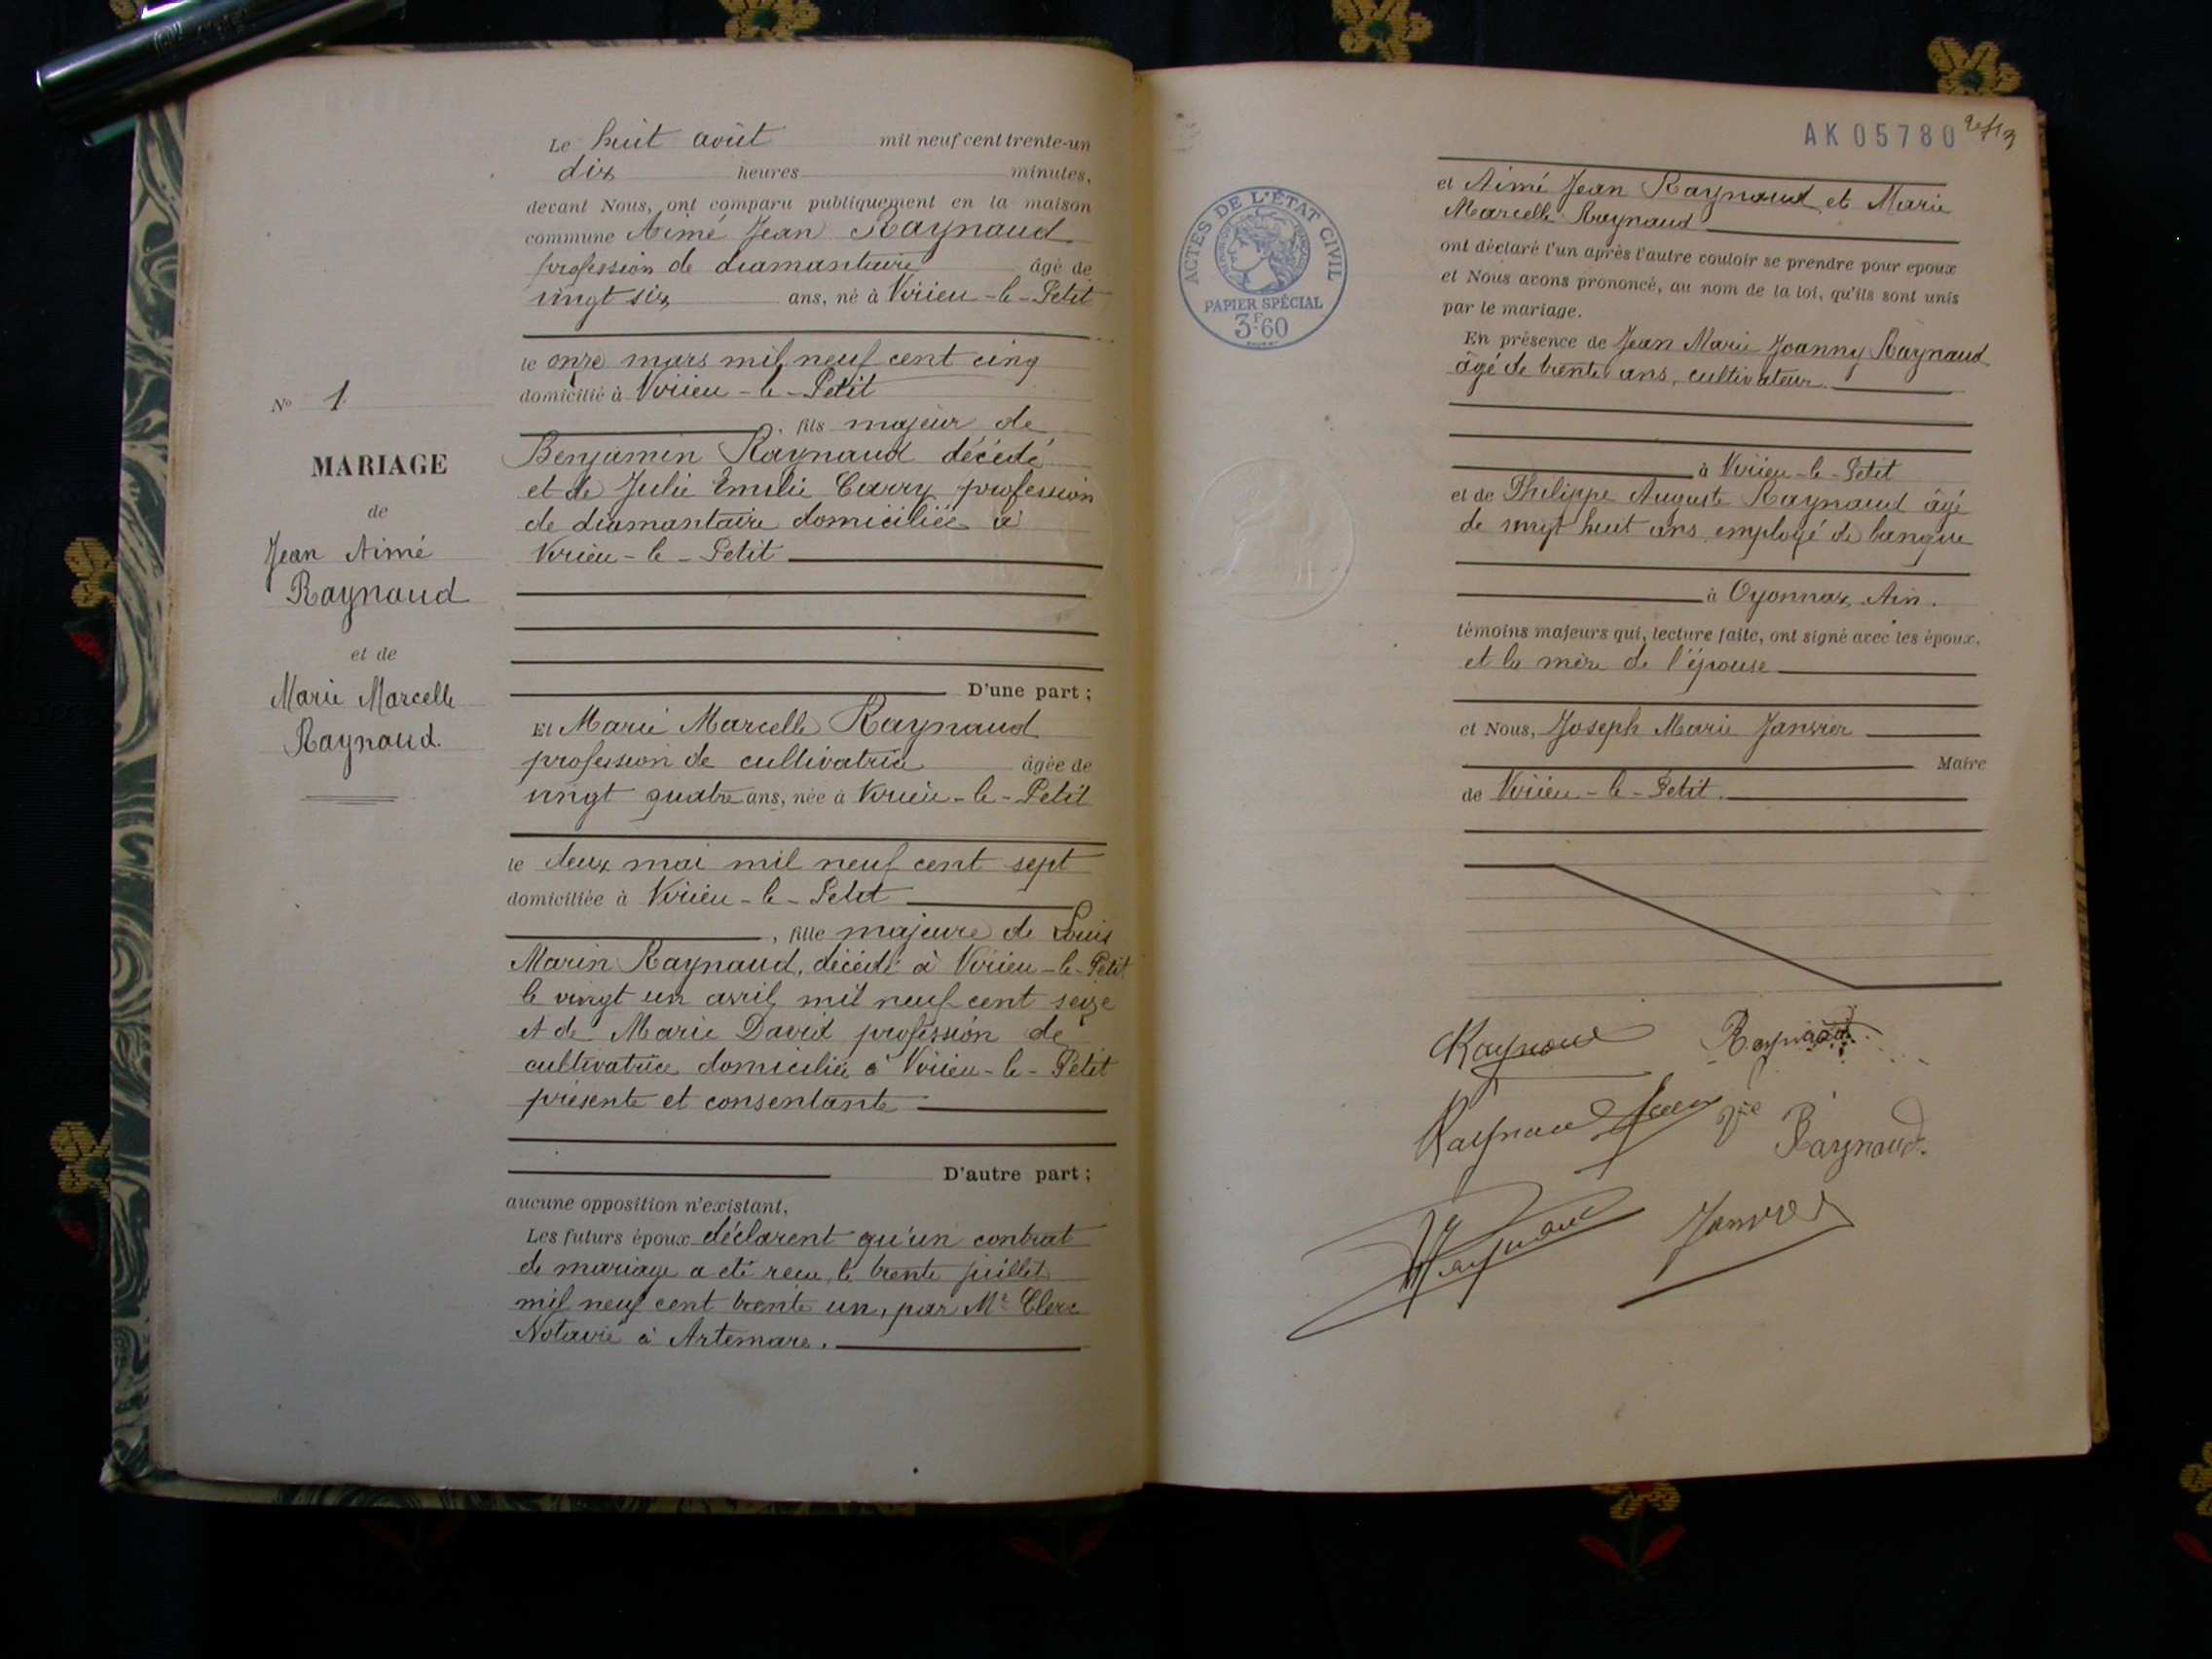 Le huit août mil neuf cent trente-un
dix heures minutes,
devant Nous, ont comparu publiquement en la maison
commune Aimé Jean Raynaud
profession de diamantaire âgé de
vingt six ans, né à Virieu-le-Petit
le onze mars mil neuf cent cinq
domicilié à Virieu-le-Petit
, fils majeur de
Benjamin Raynaud décédé
et de Julie Emilie Carry profession
de diamantaire domiciliée à
Virieu-le-Petit
D'une part ;
Et Marie Marcelle Raynaud
profession de cultivatrice âgée de
vingt quatre ans, née à Virieu-le-Petit
le deux mai mil neuf cent sept
domiciliée à Virieu-le-Petit
, fille majeure de Louis
Marin Raynaud, décédé à Virieu-le-Petit
le vingt un avril mil neuf cent seize
et de Marie David profession de
cultivatrice domiciliée à Virieu-le-Petit
présente et consentante
D'autre part ;
aucune opposition n'existant,
Les futurs époux déclarent qu'un contrat
de mariage a été reçu le trente juillet
mil neuf cent trente un, par Me Clerc
Notaire à Artemare.
No 1
MARIAGE
de
Jean Aimé
Raynaud
et de
Marie Marcelle
Raynaud.
AK 05780
ACTES DE L'ÉTAT CIVIL
PAPIER SPÉCIAL
3F60
et Aimé Jean Raynaud et Marie
Marcelle Raynaud
ont déclaré l'un après l'autre vouloir se prendre pour époux
et Nous avons prononcé, au nom de la loi, qu'ils sont unis
par le mariage.
En présence de Jean Marie Joanny Raynaud
âgé de trente ans, cultivateur
à Virieu-le-Petit
et de Philippe Auguste Raynaud âgé
de vingt huit ans employé de banque
à Oyonnax, Ain.
témoins majeurs qui, lecture faite, ont signé avec les époux,
et la mère de l'épouse
et Nous, Joseph Marie Janvier
Maire
de Virieu-le-Petit.
Raynaud Raynaud
Raynaud Vve Raynaud.
Raynaud Janvier